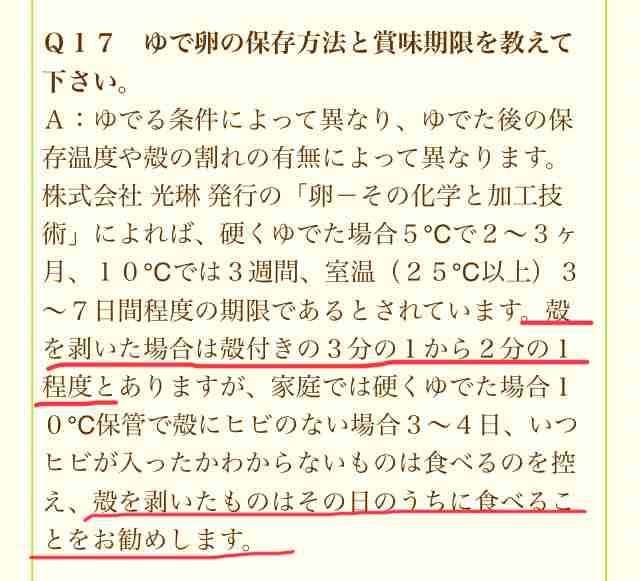 Ｑ１７　ゆで卵の保存方法と賞味期限を教えて
下さい。
Ａ：ゆでる条件によって異なり、ゆでた後の保
存温度や殻の割れの有無によって異なります。
株式会社 光琳 発行の「卵－その化学と加工技
術」によれば、硬くゆでた場合５℃で２～３ヶ
月、１０℃では３週間、室温（２５℃以上）３
～７日間程度の期限であるとされています。殻
を剥いた場合は殻付きの３分の１から２分の１
程度とありますが、家庭では硬くゆでた場合１
０℃保管で殻にヒビのない場合３～４日、いつ
ヒビが入ったかわからないものは食べるのを控
え、殻を剥いたものはその日のうちに食べるこ
とをお勧めします。